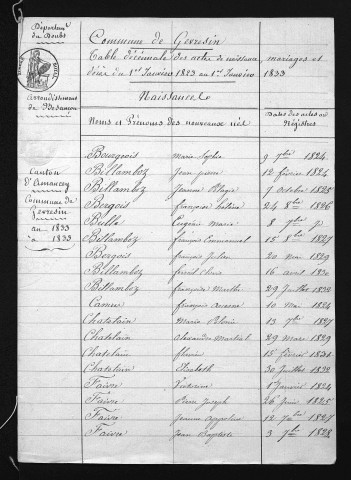 Départemt
du Doubs
Arrondissement
de Besançon
Canton
d'Amancey
Commune de
Gevresin
an 1823
à 1833
Commune de Gevresin
Table décennale des actes de naissance, mariages et
décès du 1er Janvier 1823 au 1er Janvier 1833
Naissances
Noms et Prénoms des nouveaux nés Dates des actes au Registres
Bourgeois Marie Sophie 9 7bre 1824
Billamboz Jean pierre 12 février 1824
Billamboz Jeanne 7 octobre 1825
Bergois françoise 24 8bre 1826
Bulle Eugénie Marie 8 7bre
Billamboz françois Emmanuel 15 8bre 1827
Bergois françois Julien 20 mai 1829
Billamboz 16 avril 1830
Billamboz françoise Marthe 29 Juillet 1832
françois 10 mai 1824
Chatelain Marie 13 7bre 1827
Chatelain Alexandre Martial 29 mars 1829
Chatelain 15 février 1831
Chatelain Elisabeth 30 Juillet 1832
Faivre Janvier 1824
Faivre Pierre Joseph 26 Juin 1825
Faivre Jeanne 12 1827
Faivre Jean Baptiste 3 7bre 1828